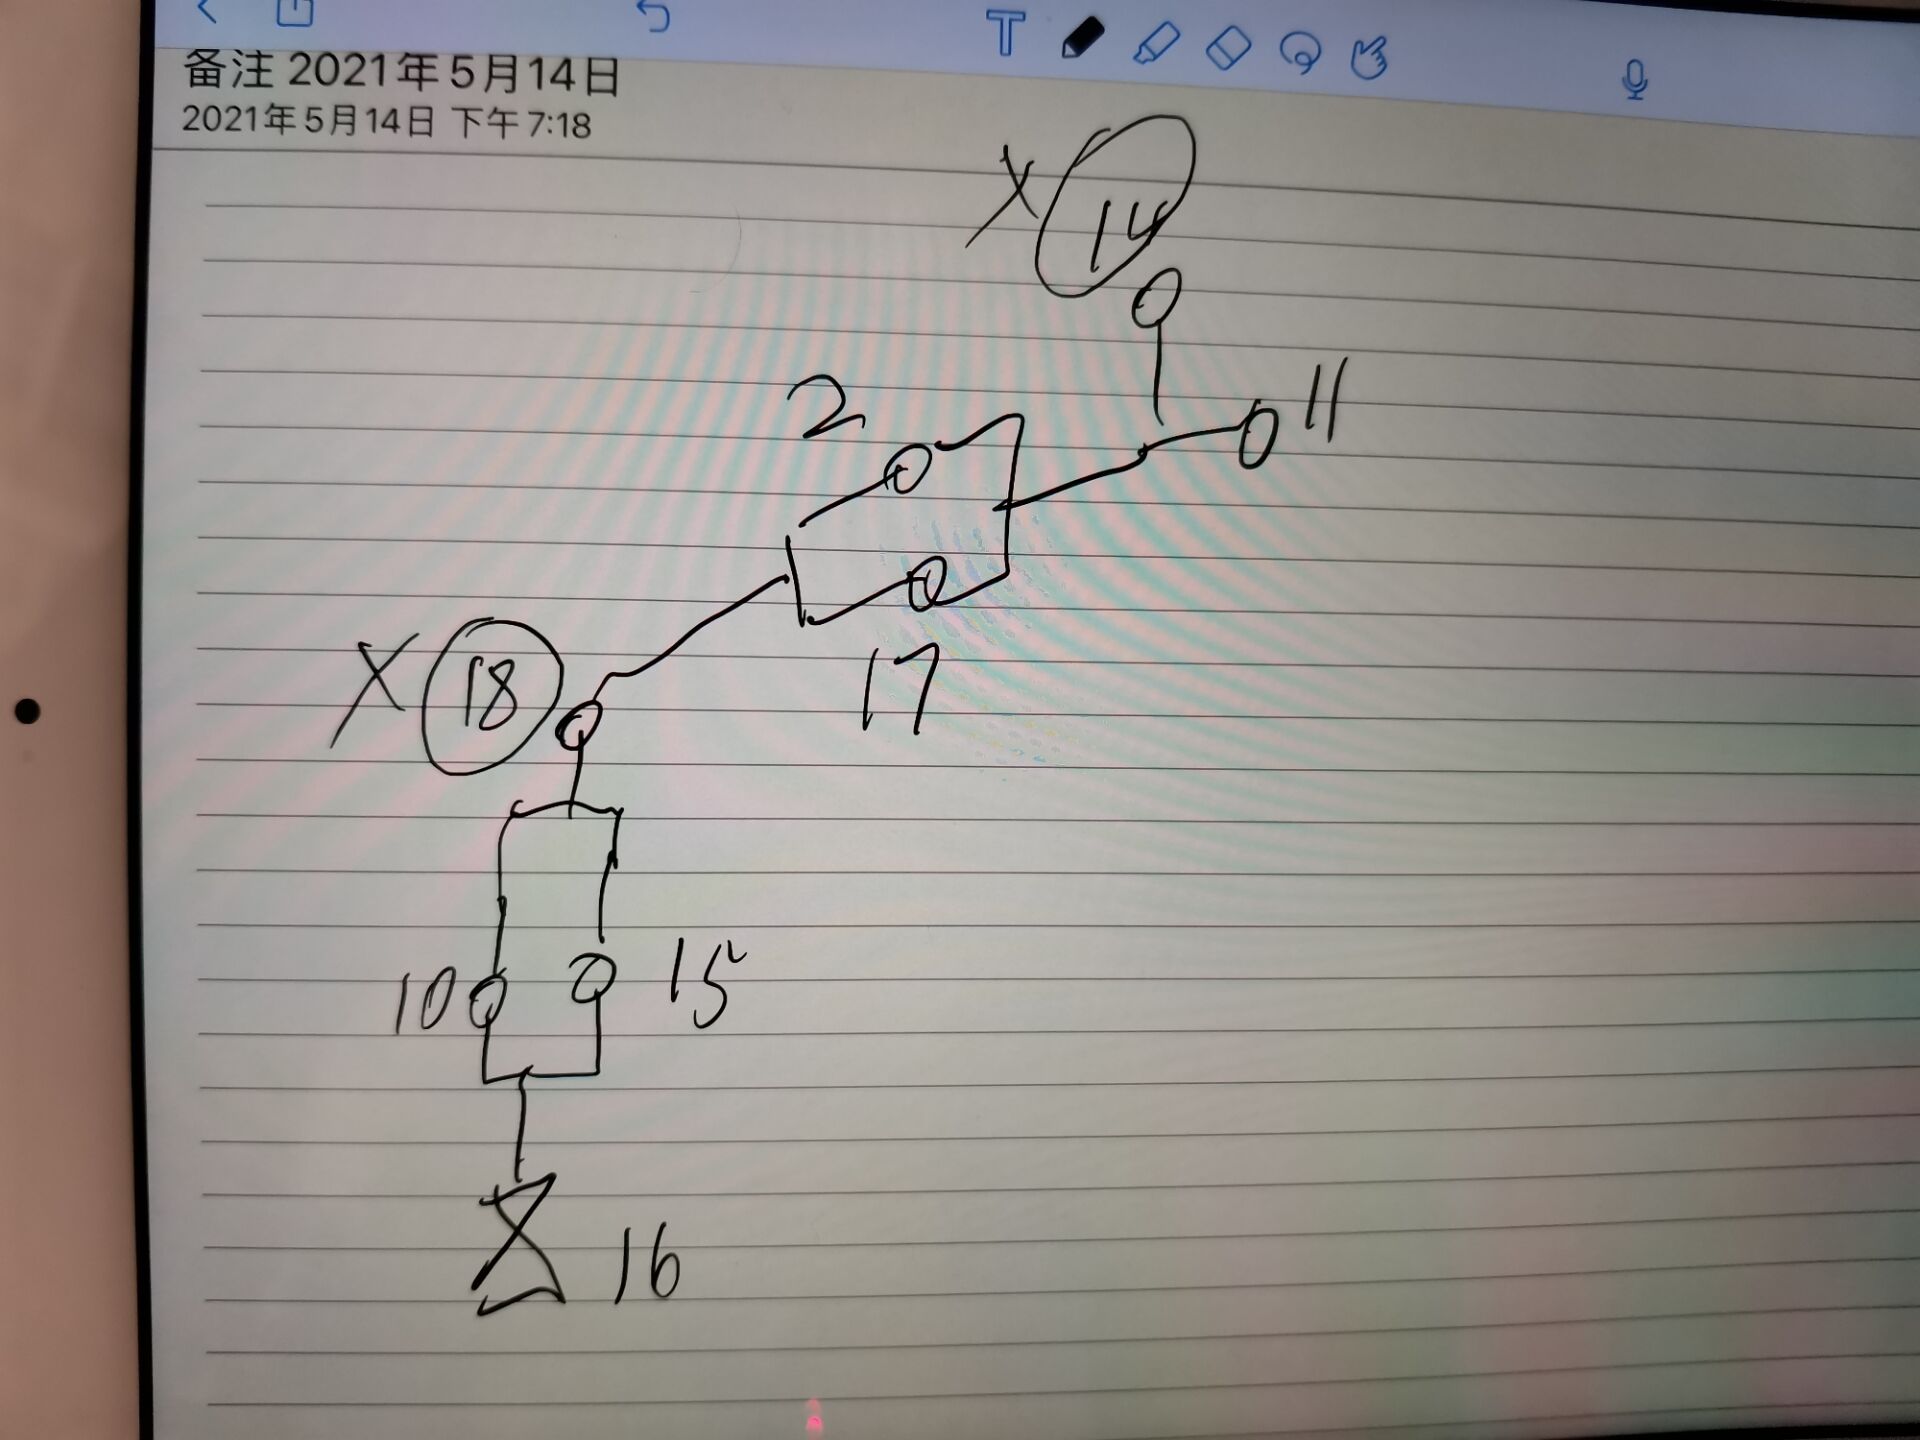 备注 2021年5月14日
2021年5月14日 下午 7:18
T
X 14
11
2
17
X 18
10
15
16